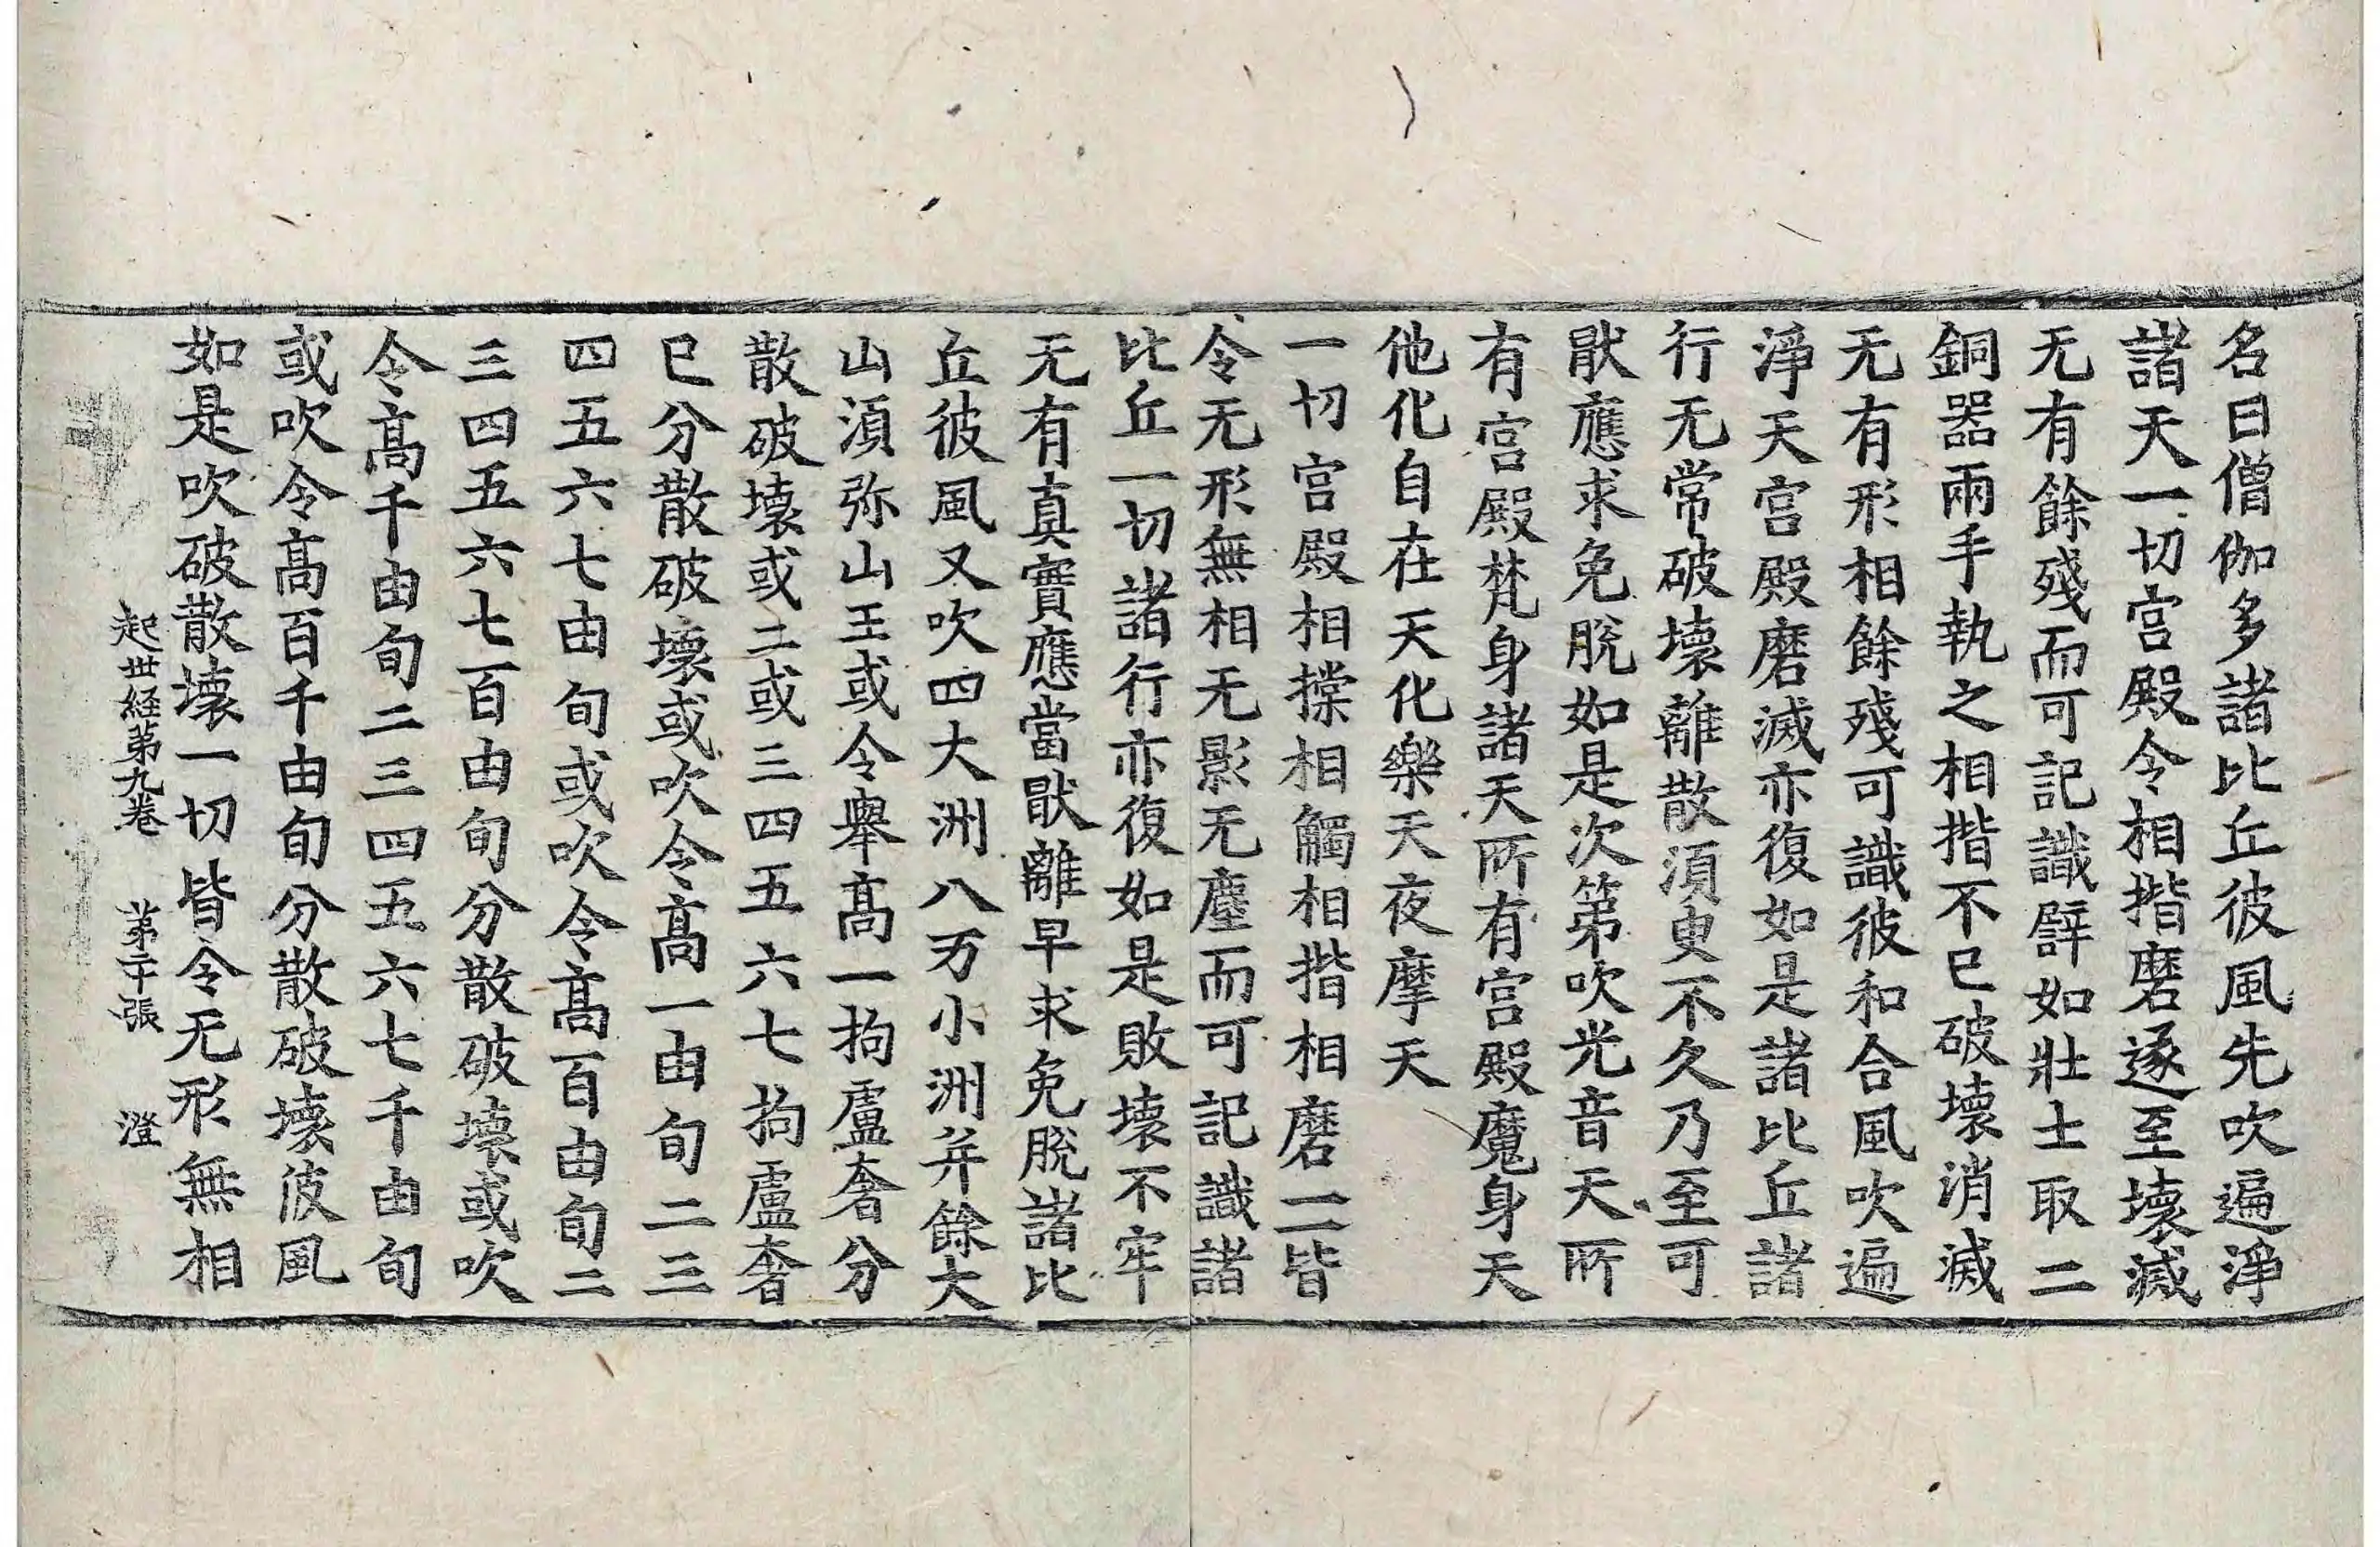 名曰僧伽多諸比丘彼風先吹遍淨
諸天一切宮殿令相揩磨遂至壞滅
无有餘殘而可記識譬如壯士取二
銅器兩手執之相揩不已破壞消滅
无有形相餘殘可識彼和合風吹遍
淨天宮殿磨滅亦復如是諸比丘諸
行无常破壞離散須臾不久乃至可
猒應求免脫如是次第吹光音天所
有宮殿梵身諸天所有宮殿魔身天
他化自在天化樂天夜摩天
一切宮殿相㨶相觸相揩相磨一一皆
令无形無相无影无塵而可記識諸
比丘一切諸行亦復如是敗壞不牢
无有真實應當猒離早求免脫諸比
丘彼風又吹四大洲八万小洲并餘大
山須弥山王或令舉髙一拘盧奢分
散破壞或二或三四五六七拘盧奢
已分散破壞或吹令髙一由旬二三
四五六七由旬或吹令髙百由旬二
三四五六七百由旬分散破壞或吹
令髙千由旬二三四五六七千由旬
或吹令髙百千由旬分散破壞彼風
如是吹破散壞一切皆令无形無相
起世経第九卷 第二十張 澄